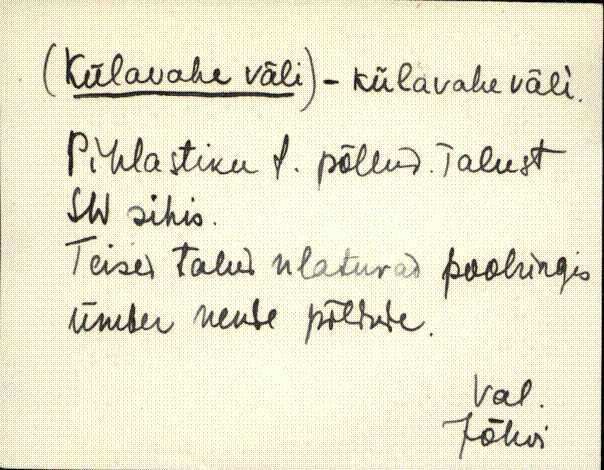 (Külavahe väli) - külavahe väli.
Pihlastiku t. põllud. Talust
SW sihis.
Teised talud ulatuvad poolringis
ümber nende põldude.
Val.
Jõhvi